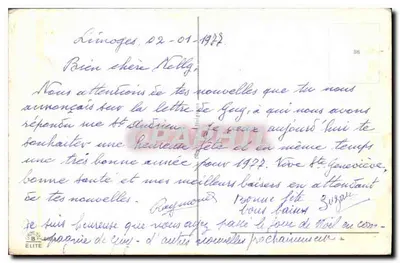 Limoges, 02-01-1977
Bien chère Nelly,
Nous attentions de tes nouvelles que tu nous
annonçais sur la lettre de Guy, à qui nous avons
répondu aujourd'hui te
souhaiter une heureuse fête et en même temps
une très bonne année pour 1977. Vive Ste Geneviève,
bonne santé et mes meilleurs baisers en attendant
de tes nouvelles. Raymond Bonne fête
bons baisers
Je suis heureuse que vous ayez passé le jour de Noël en com-
pagnie de Guy - d'autres nouvelles prochainement.
ELITE